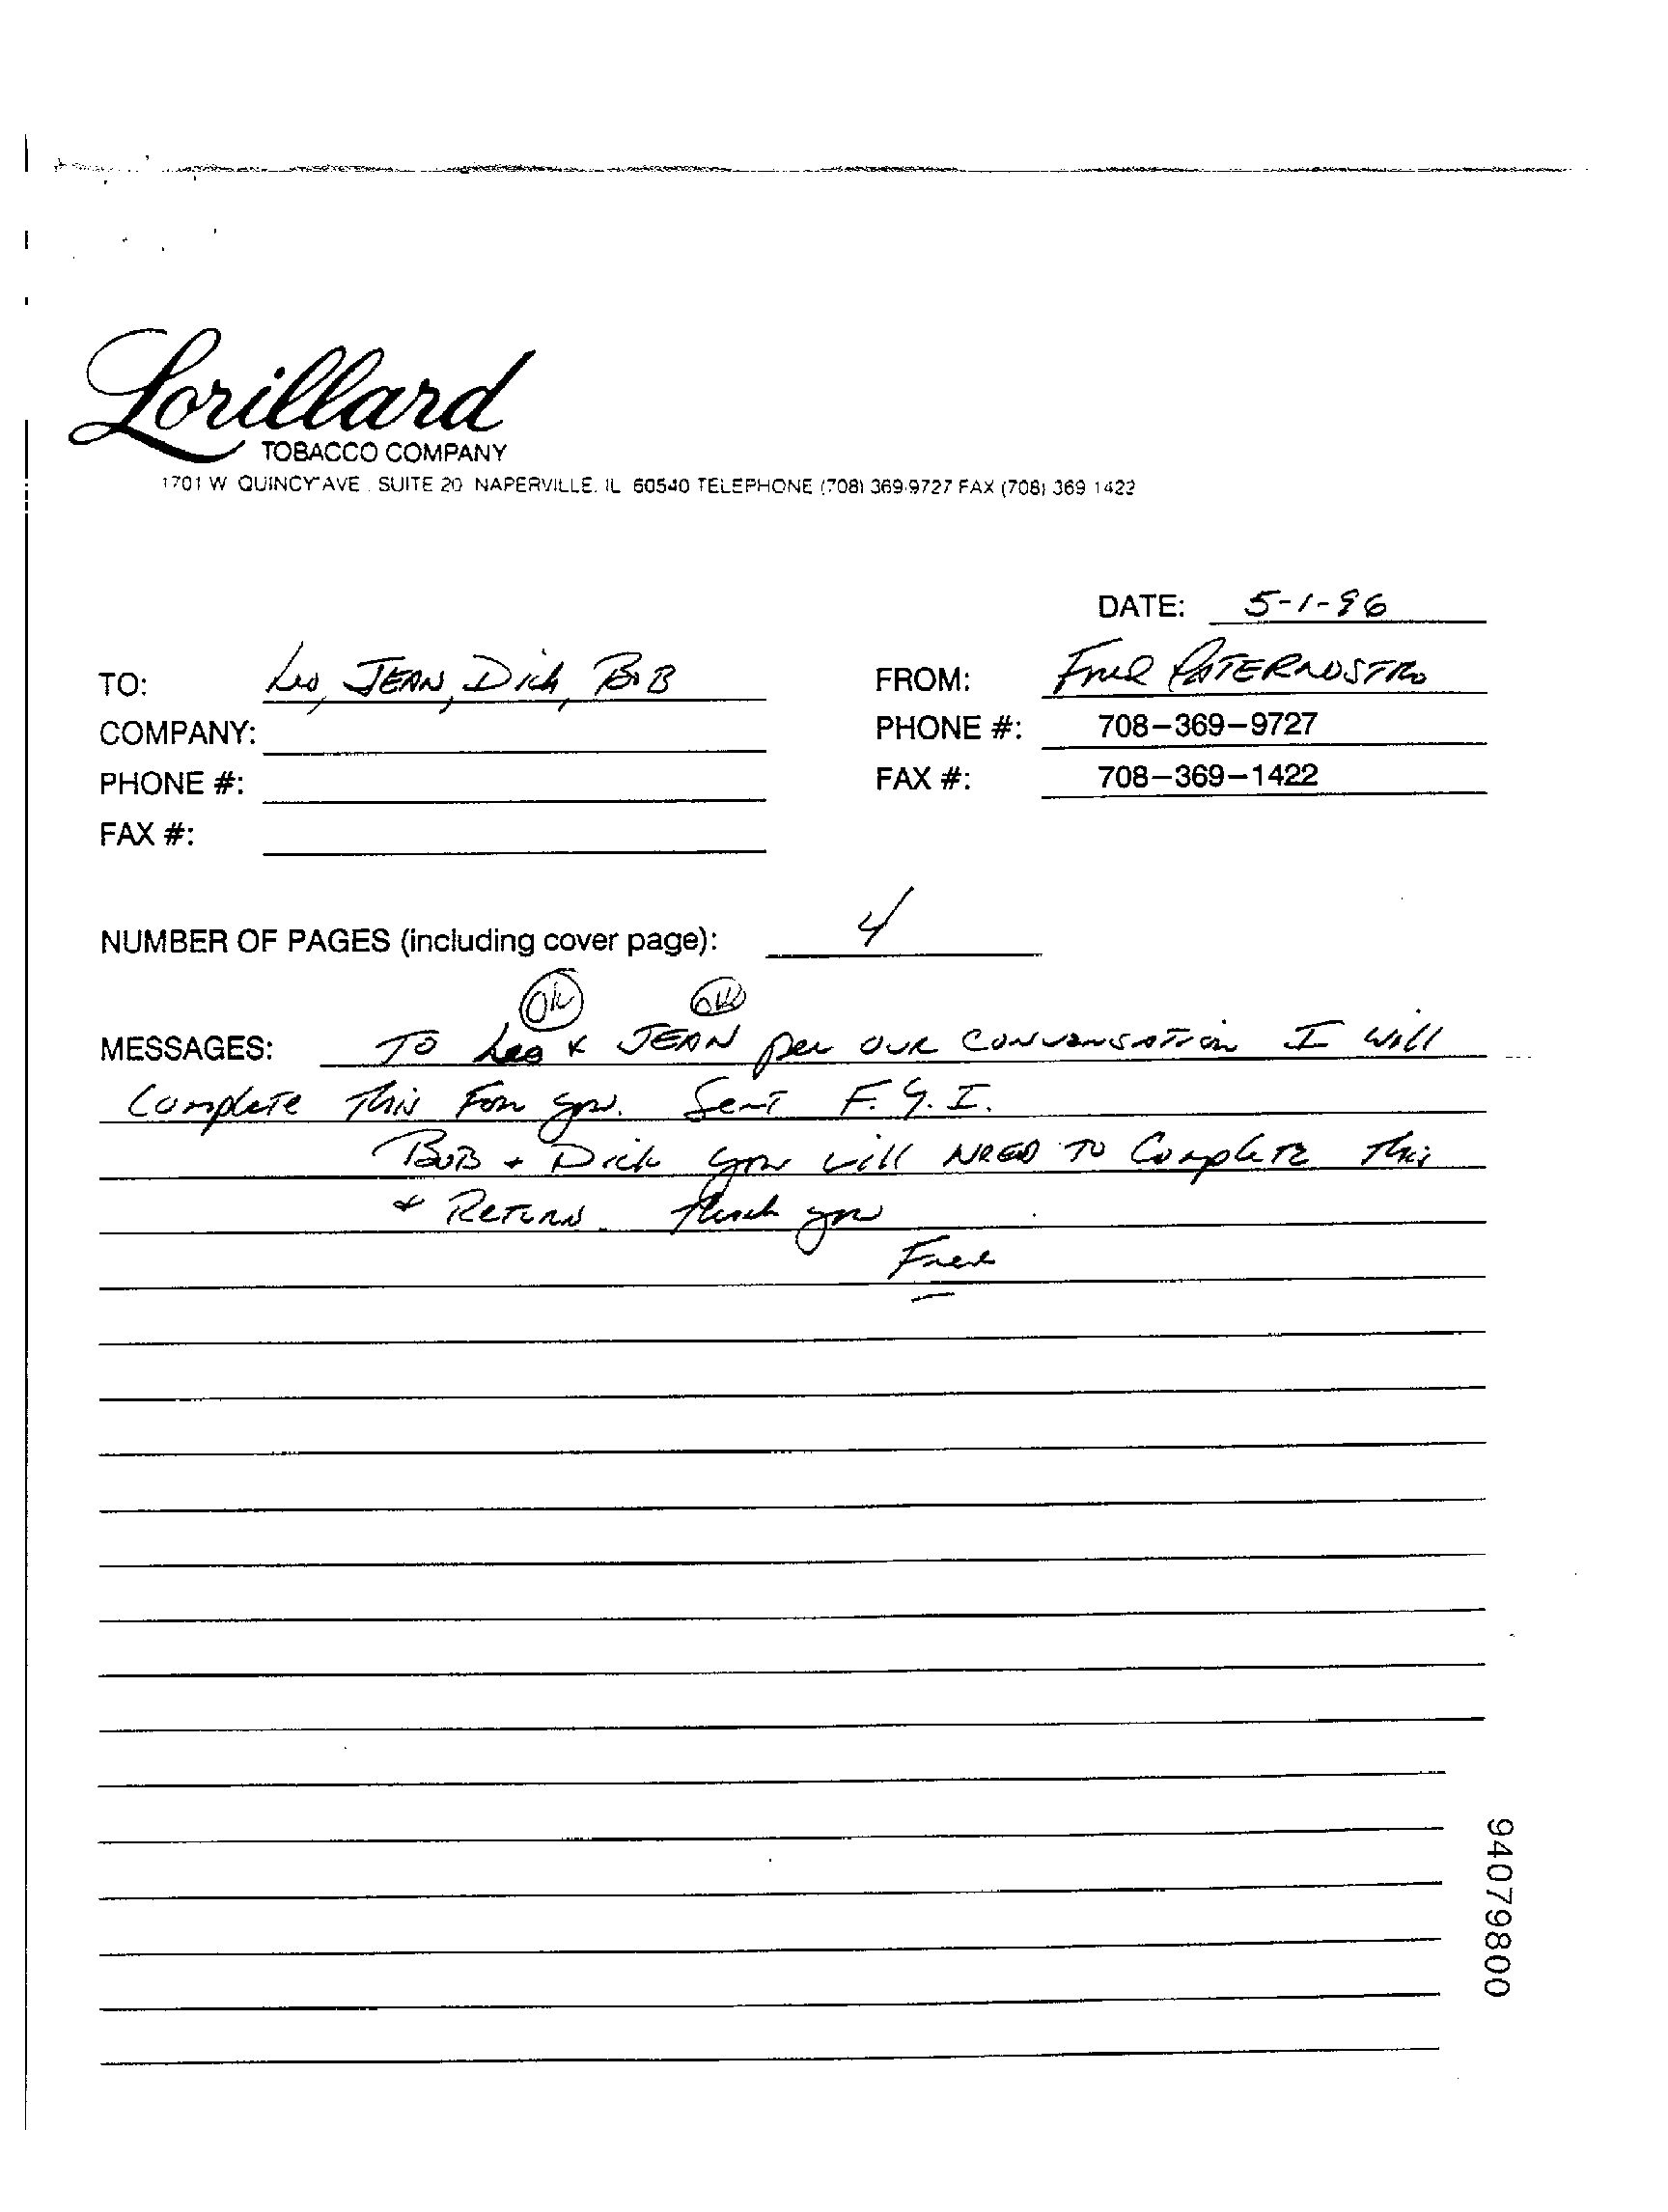 Lorillard
TOBACCO COMPANY
1701 W QUINCY AVE. SUITE 20 NAPERVILLE, IL 60540 TELEPHONE (708) 369-9727 FAX (708) 369 1422
DATE: 5-1-96
TO: Leo, JEAN, Dick, BOB
FROM: Fred PATERNOSTRO
COMPANY:
PHONE #: 708-369-9727
PHONE #:
FAX #: 708-369-1422
FAX #:
NUMBER OF PAGES (including cover page): 4
OK OK
MESSAGES: TO Leo & JEAN per OUR CONVERSATION I will
Complete This For you. Sent F.Y.I.
BOB + Dick you will NEED TO Complete This
& RETURN. Thank you
Fred
94079800